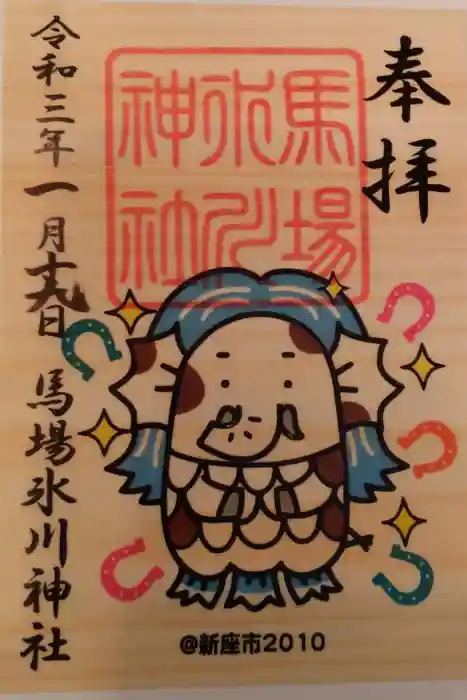 奉拝
馬場
氷川
神社
令和三年一月十九日 馬場氷川神社
@新座市2010